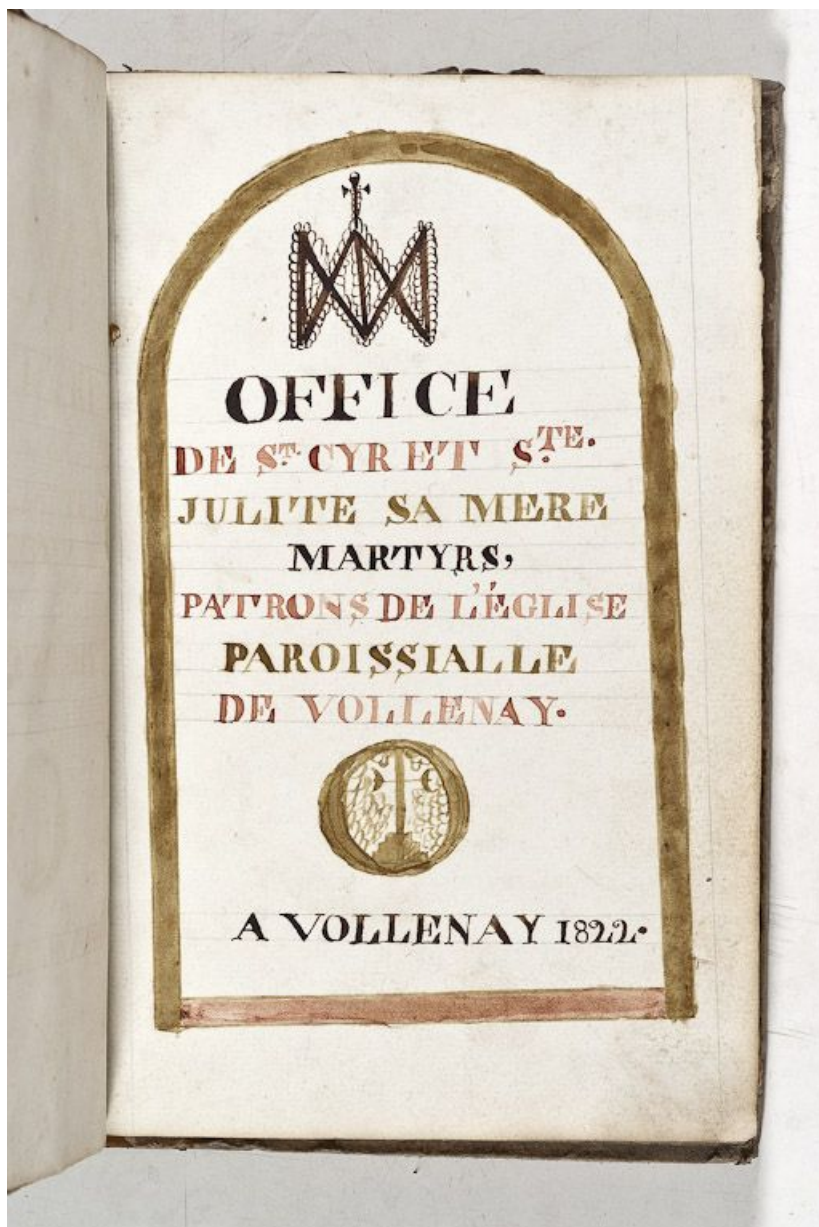 OFFICE
DE ST. CYR ET S.TE.
JULITE SA MERE
MARTYRS,
PATRONS DE L'ÉGLISE
PAROISSIALLE
DE VOLLENAY.
A VOLLENAY 1822.